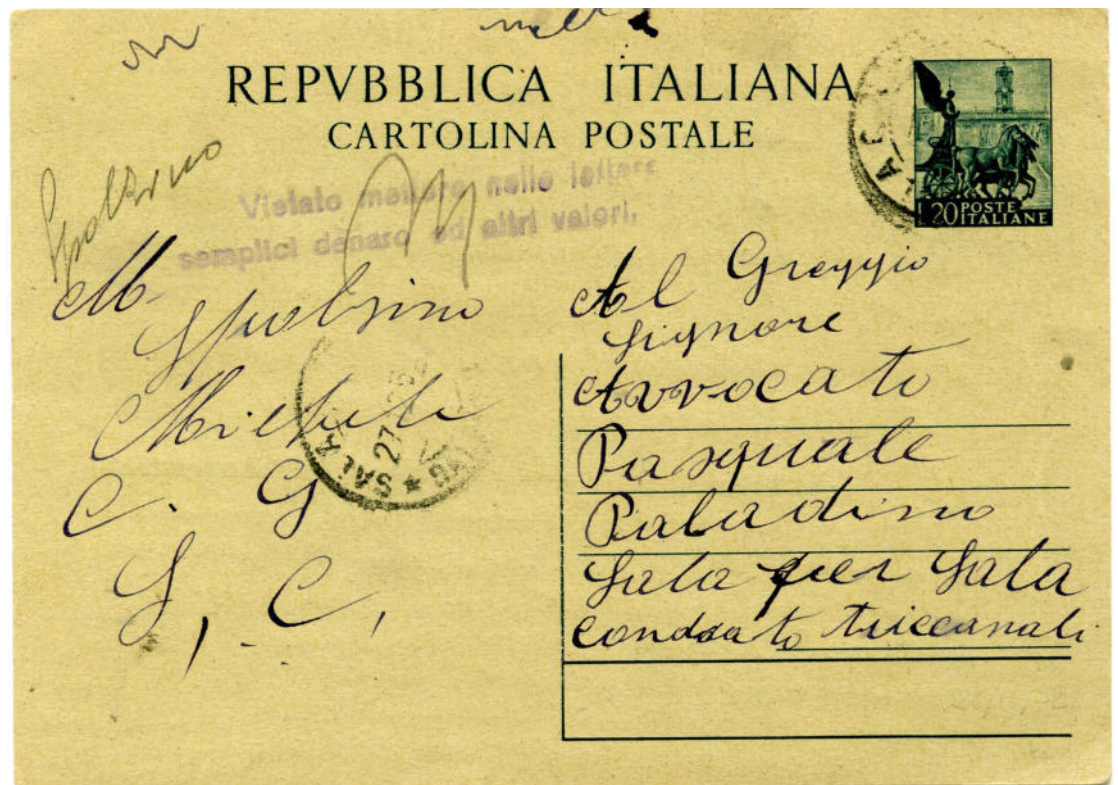 REPVBBLICA ITALIANA
CARTOLINA POSTALE
20 POSTE
ITALIANE
Vietato mettere nelle lettere
semplici denaro ed altri valori.
Spolzino
M
Spolzino
Michele
C. G
S. C.
SALA
27
Al Greggio
Signore
Avvocato
Pasquale
Paladino
Sala per Sala